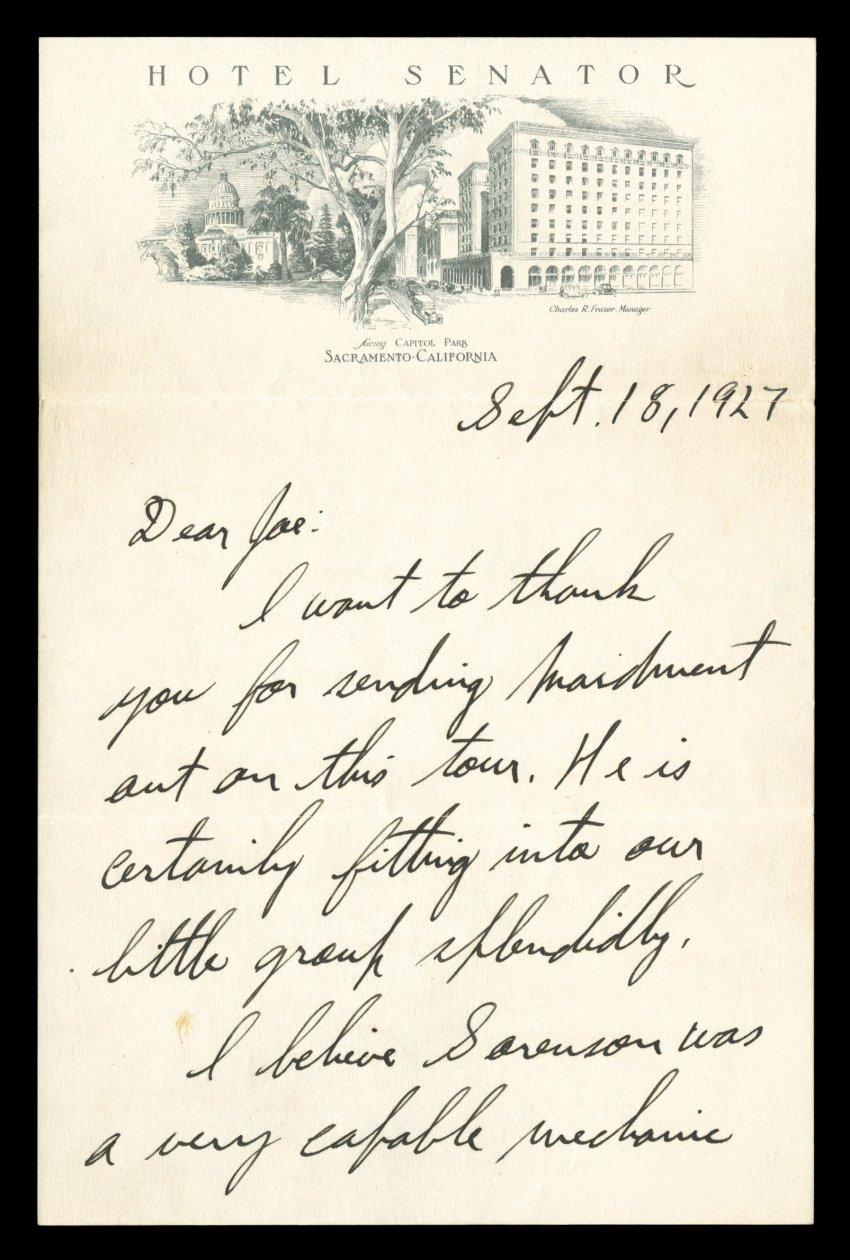 HOTEL SENATOR
Charles R. Fraser. Manager
facing CAPITOL PARK
SACRAMENTO-CALIFORNIA
Sept. 18, 1927
Dear Joe:
I want to thank
you for sending Maidment
out on this tour. He is
certainly fitting into our
little group splendidly.
I believe Sorenson was
a very capable mechanic